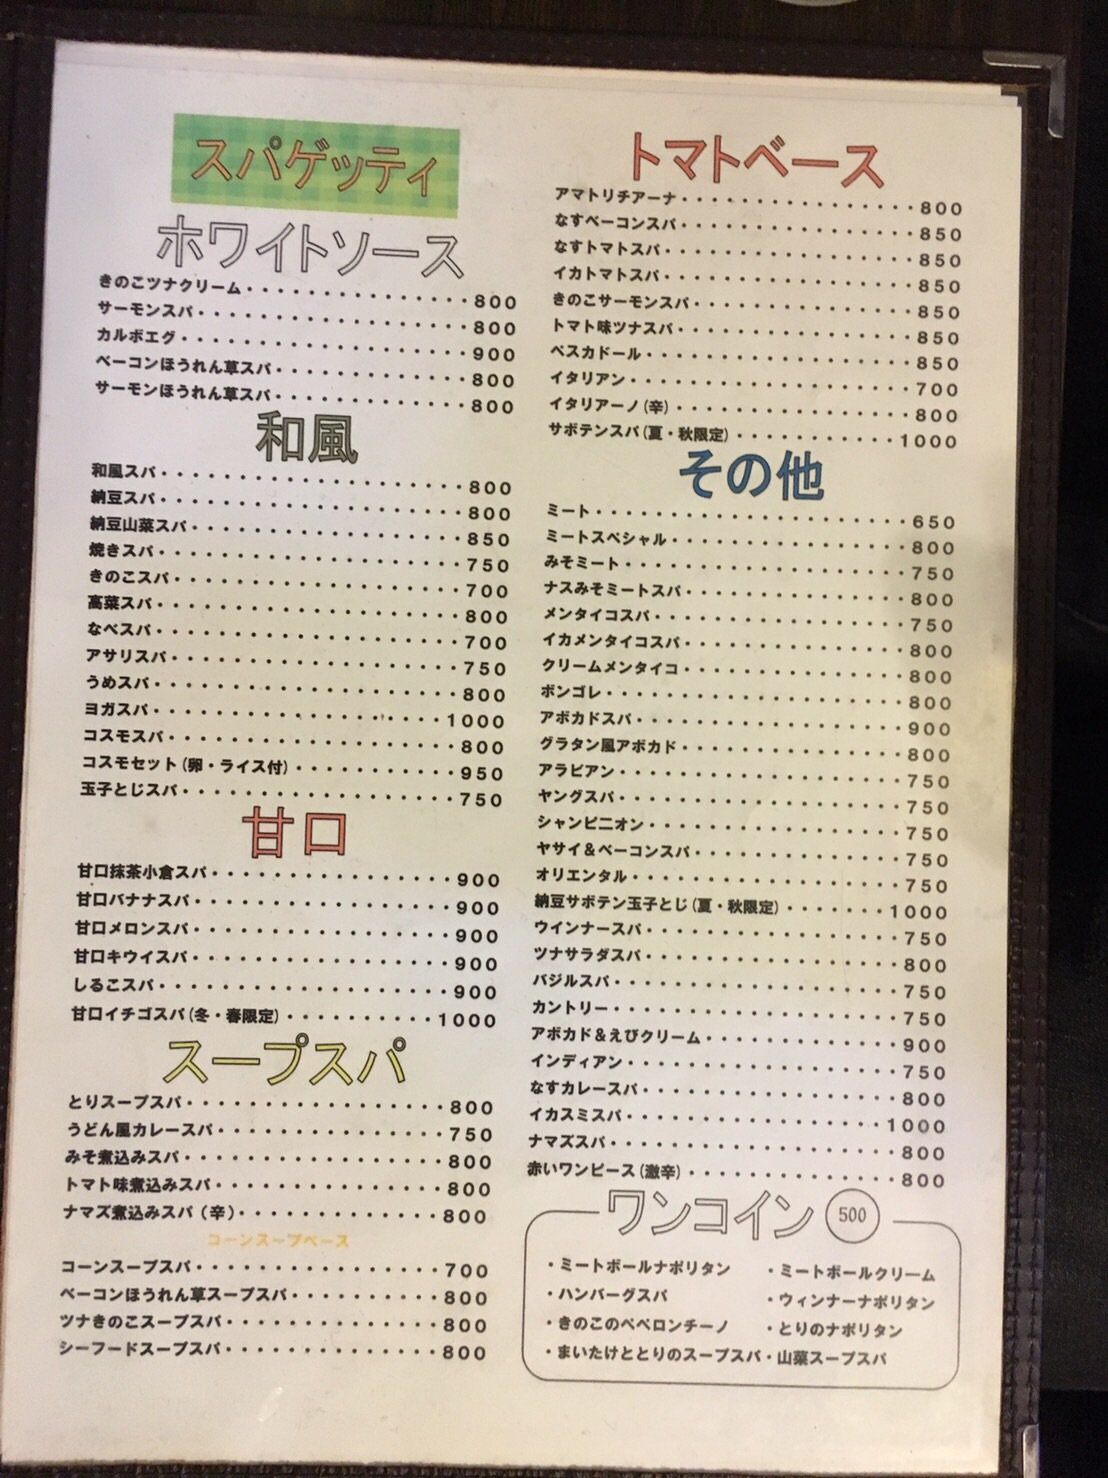 スパゲッティ
ホワイトソース
きのこツナクリーム・・・・・・・・・・・・・・・800
サーモンスパ・・・・・・・・・・・・・・・・・800
カルボエグ・・・・・・・・・・・・・・・・・・900
ベーコンほうれん草スパ・・・・・・・・・・・・・800
サーモンほうれん草スパ・・・・・・・・・・・・・800
和風
和風スパ・・・・・・・・・・・・・・・・・・・800
納豆スパ・・・・・・・・・・・・・・・・・・・800
納豆山菜スパ・・・・・・・・・・・・・・・・・850
焼きスパ・・・・・・・・・・・・・・・・・・・750
きのこスパ・・・・・・・・・・・・・・・・・・700
高菜スパ・・・・・・・・・・・・・・・・・・・800
なべスパ・・・・・・・・・・・・・・・・・・・700
アサリスパ・・・・・・・・・・・・・・・・・・750
うめスパ・・・・・・・・・・・・・・・・・・・800
ヨガスパ・・・・・・・・・・・・・・・・・・1000
コスモスパ・・・・・・・・・・・・・・・・・・800
コスモセット(卵・ライス付)・・・・・・・・・・・950
玉子とじスパ・・・・・・・・・・・・・・・・・750
甘口
甘口抹茶小倉スパ・・・・・・・・・・・・・・・900
甘口バナナスパ・・・・・・・・・・・・・・・・900
甘口メロンスパ・・・・・・・・・・・・・・・・900
甘口キウイスパ・・・・・・・・・・・・・・・・900
しるこスパ・・・・・・・・・・・・・・・・・・900
甘口イチゴスパ(冬・春限定)・・・・・・・・・・1000
スープスパ
とりスープスパ・・・・・・・・・・・・・・・・800
うどん風カレースパ・・・・・・・・・・・・・・750
みそ煮込みスパ・・・・・・・・・・・・・・・・800
トマト味煮込みスパ・・・・・・・・・・・・・・800
ナマズ煮込みスパ(辛)・・・・・・・・・・・・・800
コーンスープベース
コーンスープスパ・・・・・・・・・・・・・・・700
ベーコンほうれん草スープスパ・・・・・・・・・・800
ツナきのこスープスパ・・・・・・・・・・・・・800
シーフードスープスパ・・・・・・・・・・・・・800
トマトベース
アマトリチアーナ・・・・・・・・・・・・・・・800
なすベーコンスパ・・・・・・・・・・・・・・・850
なすトマトスパ・・・・・・・・・・・・・・・・850
イカトマトスパ・・・・・・・・・・・・・・・・850
きのこサーモンスパ・・・・・・・・・・・・・・850
トマト味ツナスパ・・・・・・・・・・・・・・・850
ペスカドール・・・・・・・・・・・・・・・・・850
イタリアン・・・・・・・・・・・・・・・・・・700
イタリアーノ(辛)・・・・・・・・・・・・・・・800
サボテンスパ(夏・秋限定)・・・・・・・・・・・1000
その他
ミート・・・・・・・・・・・・・・・・・・・・650
ミートスペシャル・・・・・・・・・・・・・・・800
みそミート・・・・・・・・・・・・・・・・・・750
ナスみそミートスパ・・・・・・・・・・・・・・800
メンタイコスパ・・・・・・・・・・・・・・・・750
イカメンタイコスパ・・・・・・・・・・・・・・800
クリームメンタイコ・・・・・・・・・・・・・・800
ボンゴレ・・・・・・・・・・・・・・・・・・・800
アボカドスパ・・・・・・・・・・・・・・・・・900
グラタン風アボカド・・・・・・・・・・・・・・800
アラビアン・・・・・・・・・・・・・・・・・・750
ヤングスパ・・・・・・・・・・・・・・・・・・750
シャンピニオン・・・・・・・・・・・・・・・・750
ヤサイ&ベーコンスパ・・・・・・・・・・・・・750
オリエンタル・・・・・・・・・・・・・・・・・750
納豆サボテン玉子とじ(夏・秋限定)・・・・・・・1000
ウインナースパ・・・・・・・・・・・・・・・・750
ツナサラダスパ・・・・・・・・・・・・・・・・800
バジルスパ・・・・・・・・・・・・・・・・・・750
カントリー・・・・・・・・・・・・・・・・・・750
アボカド&えびクリーム・・・・・・・・・・・・900
インディアン・・・・・・・・・・・・・・・・・750
なすカレースパ・・・・・・・・・・・・・・・・800
イカスミスパ・・・・・・・・・・・・・・・・1000
ナマズスパ・・・・・・・・・・・・・・・・・・800
赤いワンピース(激辛)・・・・・・・・・・・・・800
ワンコイン 500
・ミートボールナポリタン ・ミートボールクリーム
・ハンバーグスパ ・ウィンナーナポリタン
・きのこのペペロンチーノ ・とりのナポリタン
・まいたけととりのスープスパ・山菜スープスパ